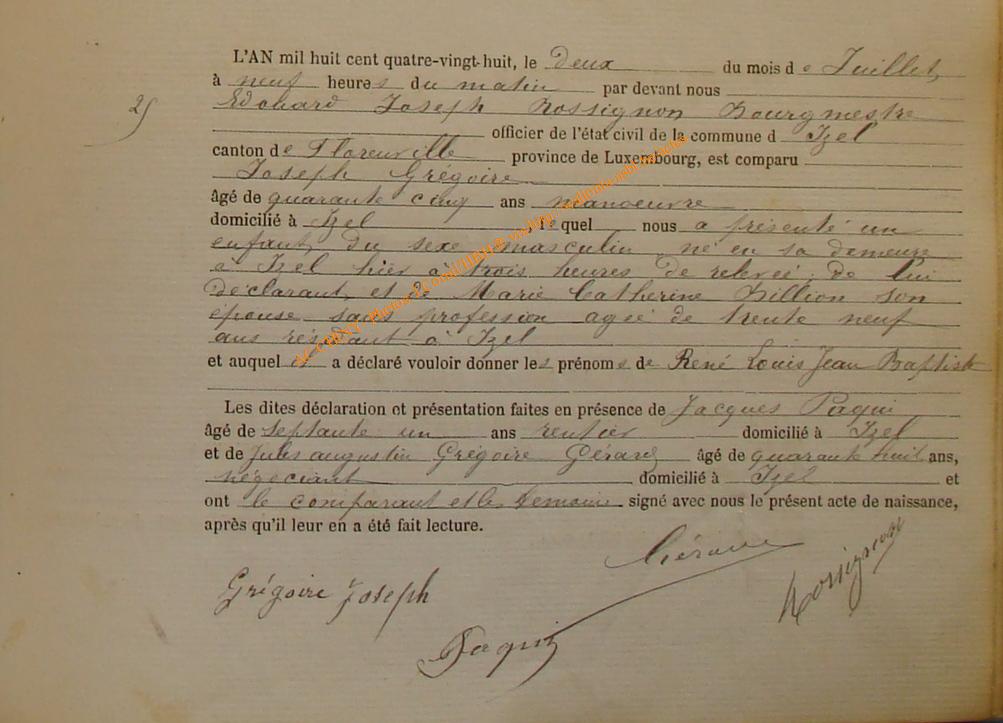 L'AN mil huit cent quatre-vingt-huit, le deux du mois de Juillet,
à neuf heures du matin par devant nous
25
Edouard Joseph Rossignon Bourgmestre
officier de l'état civil de la commune d Izel
canton de Florenville province de Luxembourg, est comparu
Joseph Grégoire
âgé de quarante cinq ans manoeuvre
domicilié à Izel lequel nous a présenté un
enfant du sexe masculin né en sa demeure
à Izel hier à trois heures de relevée de lui
déclarant et de Marie Catherine Dillion son
épouse sans profession agée de trente neuf
ans résidant à Izel
et auquel il a déclaré vouloir donner les prénoms de René Louis Jean Baptiste
Les dites déclaration et présentation faites en présence de Jacques Paqui
âgé de septante un ans rentier domicilié à Izel
et de Jules augustin Grégoire Gérard âgé de quarante huit ans,
négociant domicilié à Izel et
ont le comparant et les temoins signé avec nous le présent acte de naissance,
après qu'il leur en a été fait lecture.
Gérard
Rossignon
Grégoire Joseph
Paquis